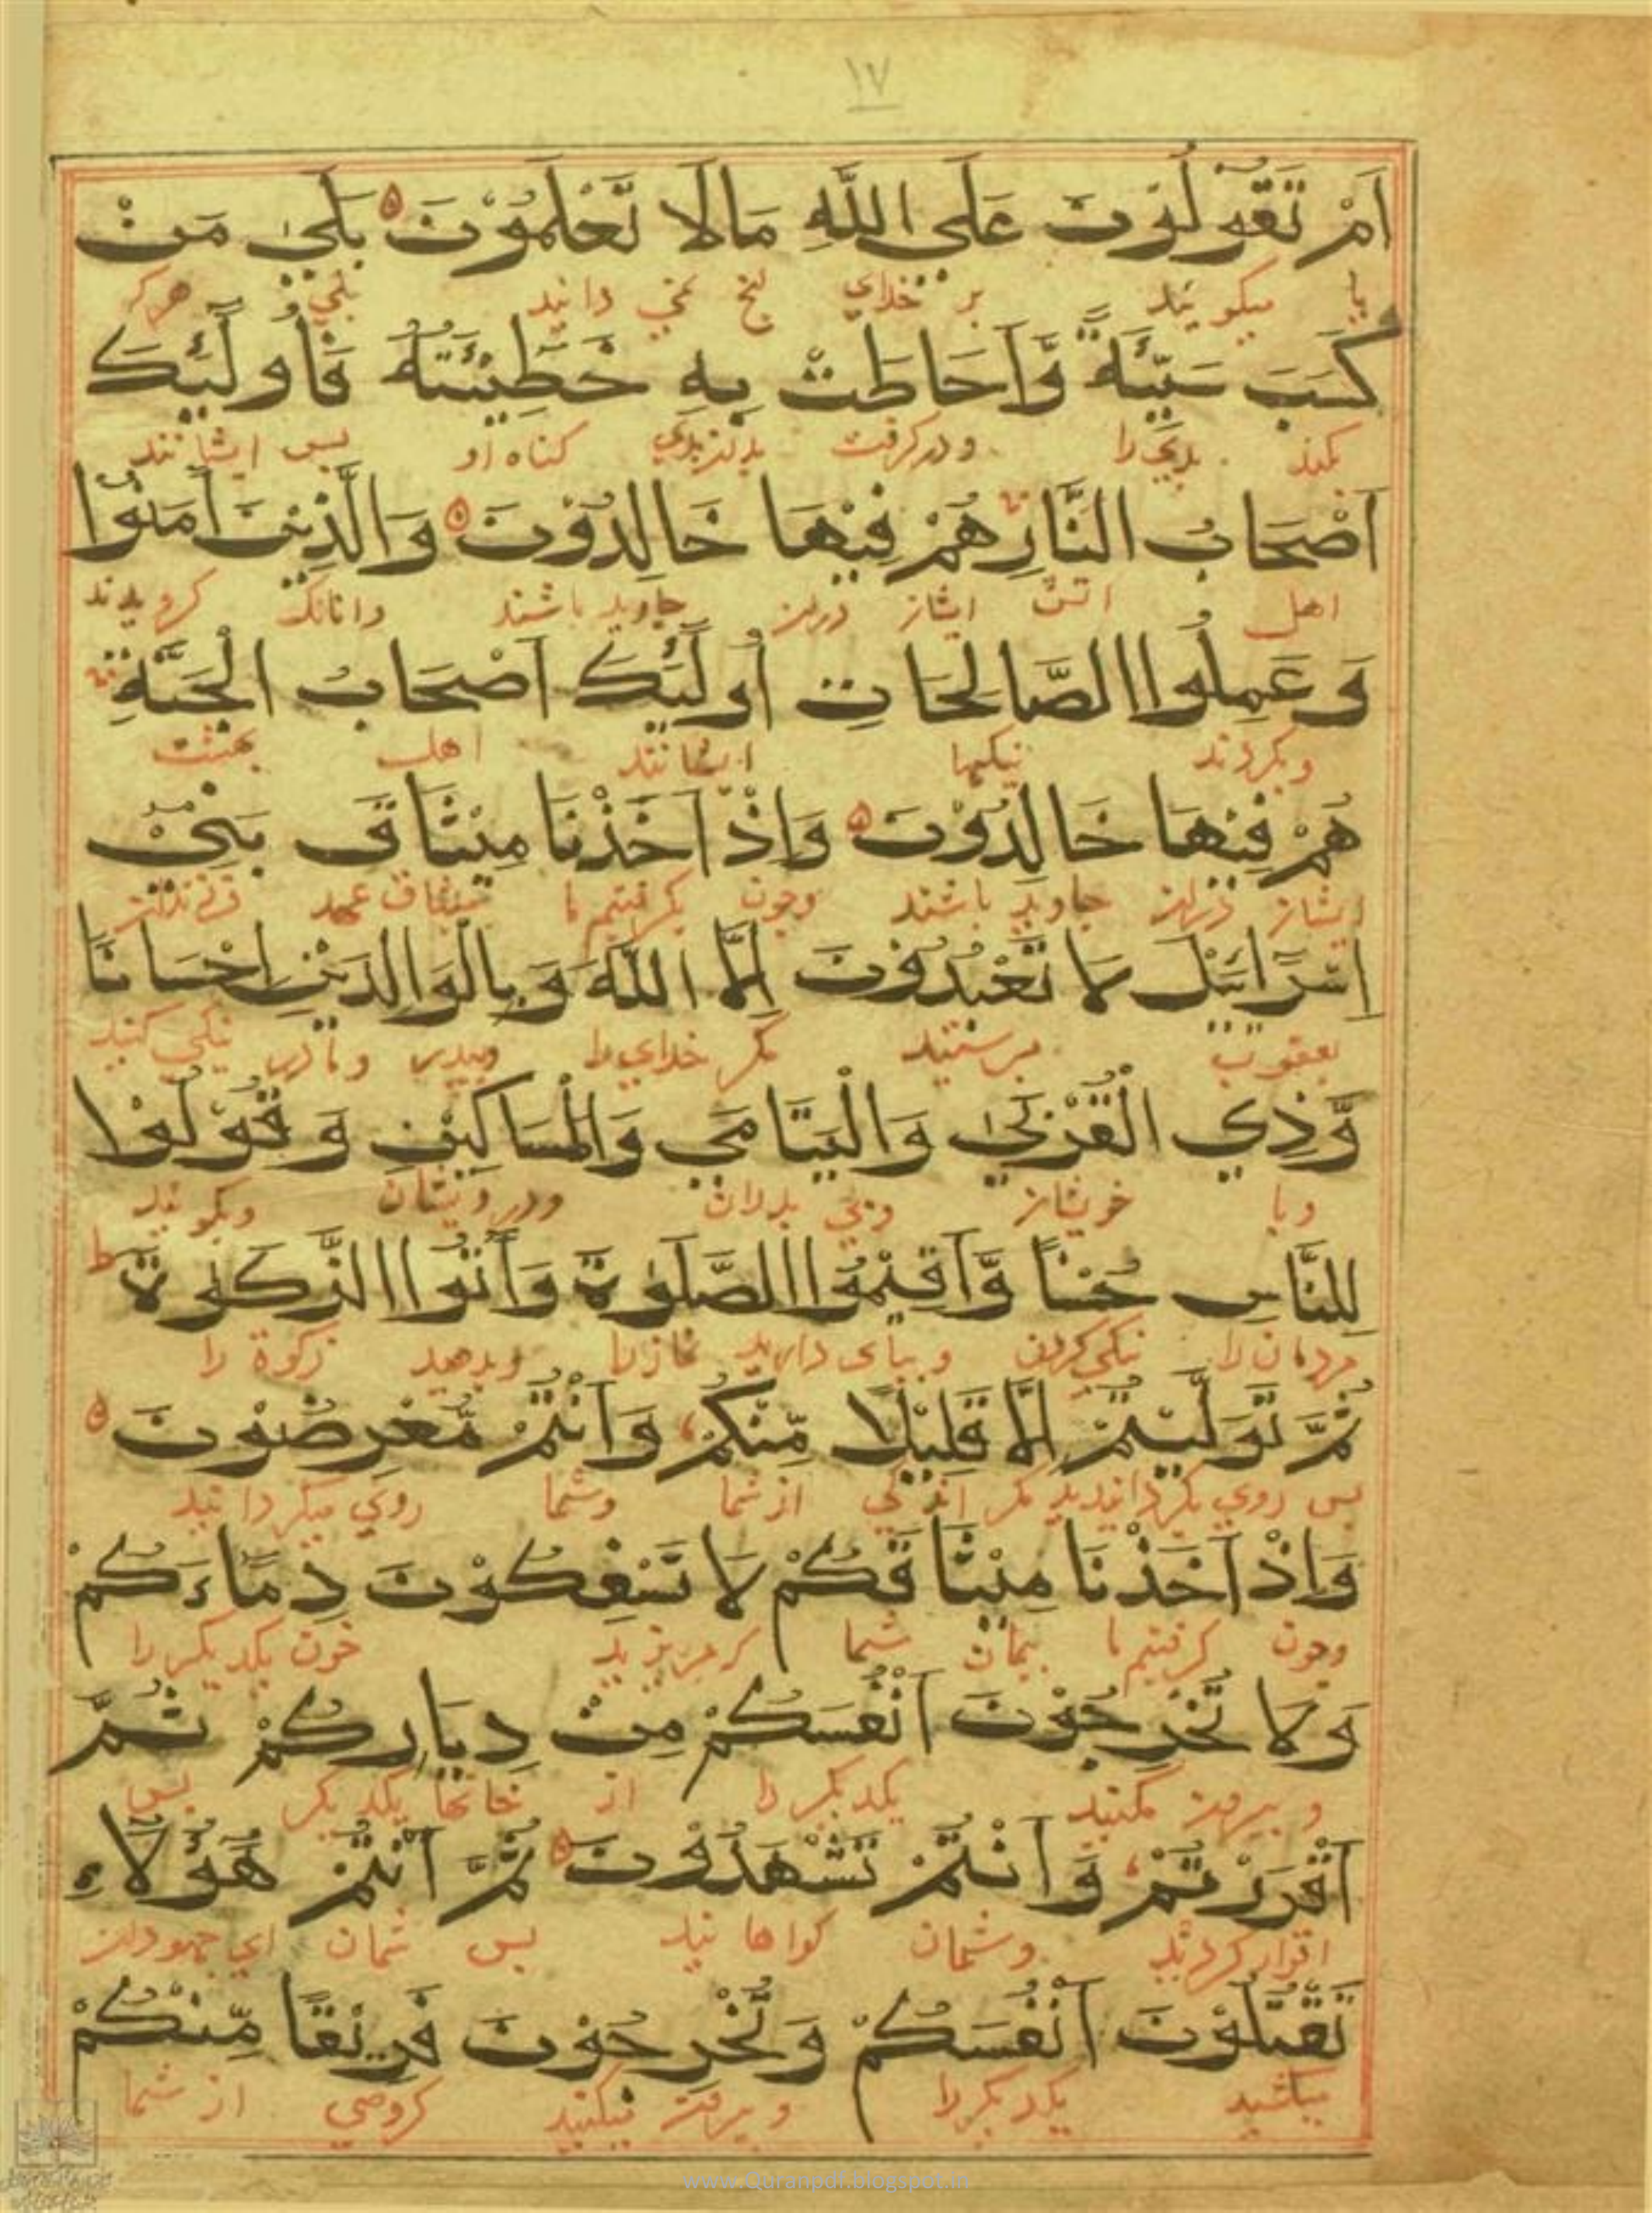 ١٧
اَمْ تَقُوْلُوْنَ عَلَى اللّٰهِ مَالَا تَعْلَمُوْنَ بَلٰى مَنْ
یا میکویید بر خدای انچ نمی دانید بلی هرکه
كَسَبَ سَيِّئَةً وَّاَحَاطَتْ بِهٖ خَطِيْئَتُهُ فَاُولَٓئِكَ
بکند بدی را ودرکرفت کناه او بس ایشانند
اَصْحَابُ النَّارِ هُمْ فِيْهَا خَالِدُوْنَ وَالَّذِيْنَ اٰمَنُوْا
اهل اتش ایشان دران جاوید باشند وانانک کرویدند
وَعَمِلُوا الصَّالِحَاتِ اُولَٓئِكَ اَصْحَابُ الْجَنَّةِ
وبکردند نیکیها ایشانند اهل بهشت
هُمْ فِيْهَا خَالِدُوْنَ وَاِذْ اَخَذْنَا مِيْثَاقَ بَنِيْ
ایشان دران جاوید باشند وجون بکرفتیم ما میثاق عهد فرزندان
اِسْرَائِيْلَ لَا تَعْبُدُوْنَ اِلَّا اللّٰهَ وَبِالْوَالِدَيْنِ اِحْسَانًا
یعقوب برستید مکر خدای را وبدر ومادر نیکی کنید
وَّذِي الْقُرْبٰى وَالْيَتَامٰي وَالْمَسَاكِيْنِ وَقُوْلُوْا
وبا خویشان وبی بدران ودرویشان وبکویید
لِلنَّاسِ حُسْنًا وَّاَقِيْمُوا الصَّلٰوةَ وَاٰتُوا الزَّكٰوةَ ط
مردمان را نیکی کردن وببای دارید نماز را وبدهید زکوة را
ثُمَّ تَوَلَّيْتُمْ اِلَّا قَلِيْلًا مِّنْكُمْ وَاَنْتُمْ مُّعْرِضُوْنَ
بس روی بکردانیدید مکر اندکی از شما وشما روی میکردانید
وَاِذْ اَخَذْنَا مِيْثَاقَكُمْ لَا تَسْفِكُوْنَ دِمَاءَكُمْ
وجون کرفتیم ما بیمان شما که مریزید خون یکدیکر را
وَلَا تُخْرِجُوْنَ اَنْفُسَكُمْ مِنْ دِيَارِكُمْ ثُمَّ
وبیرون مکنید یکدیکر را از خانها یکدیکر بس
اَقْرَرْتُمْ وَاَنْتُمْ تَشْهَدُوْنَ ثُمَّ اَنْتُمْ هٰٓؤُلَاءِ
اقرار کردید وشمان کواهانید بس شمان ای جهودان
تَقْتُلُوْنَ اَنْفُسَكُمْ وَتُخْرِجُوْنَ فَرِيْقًا مِّنْكُمْ
میکشید یکدیکر را وبیرون میکنید کروهی از شما
www.Quranpdf.blogspot.in